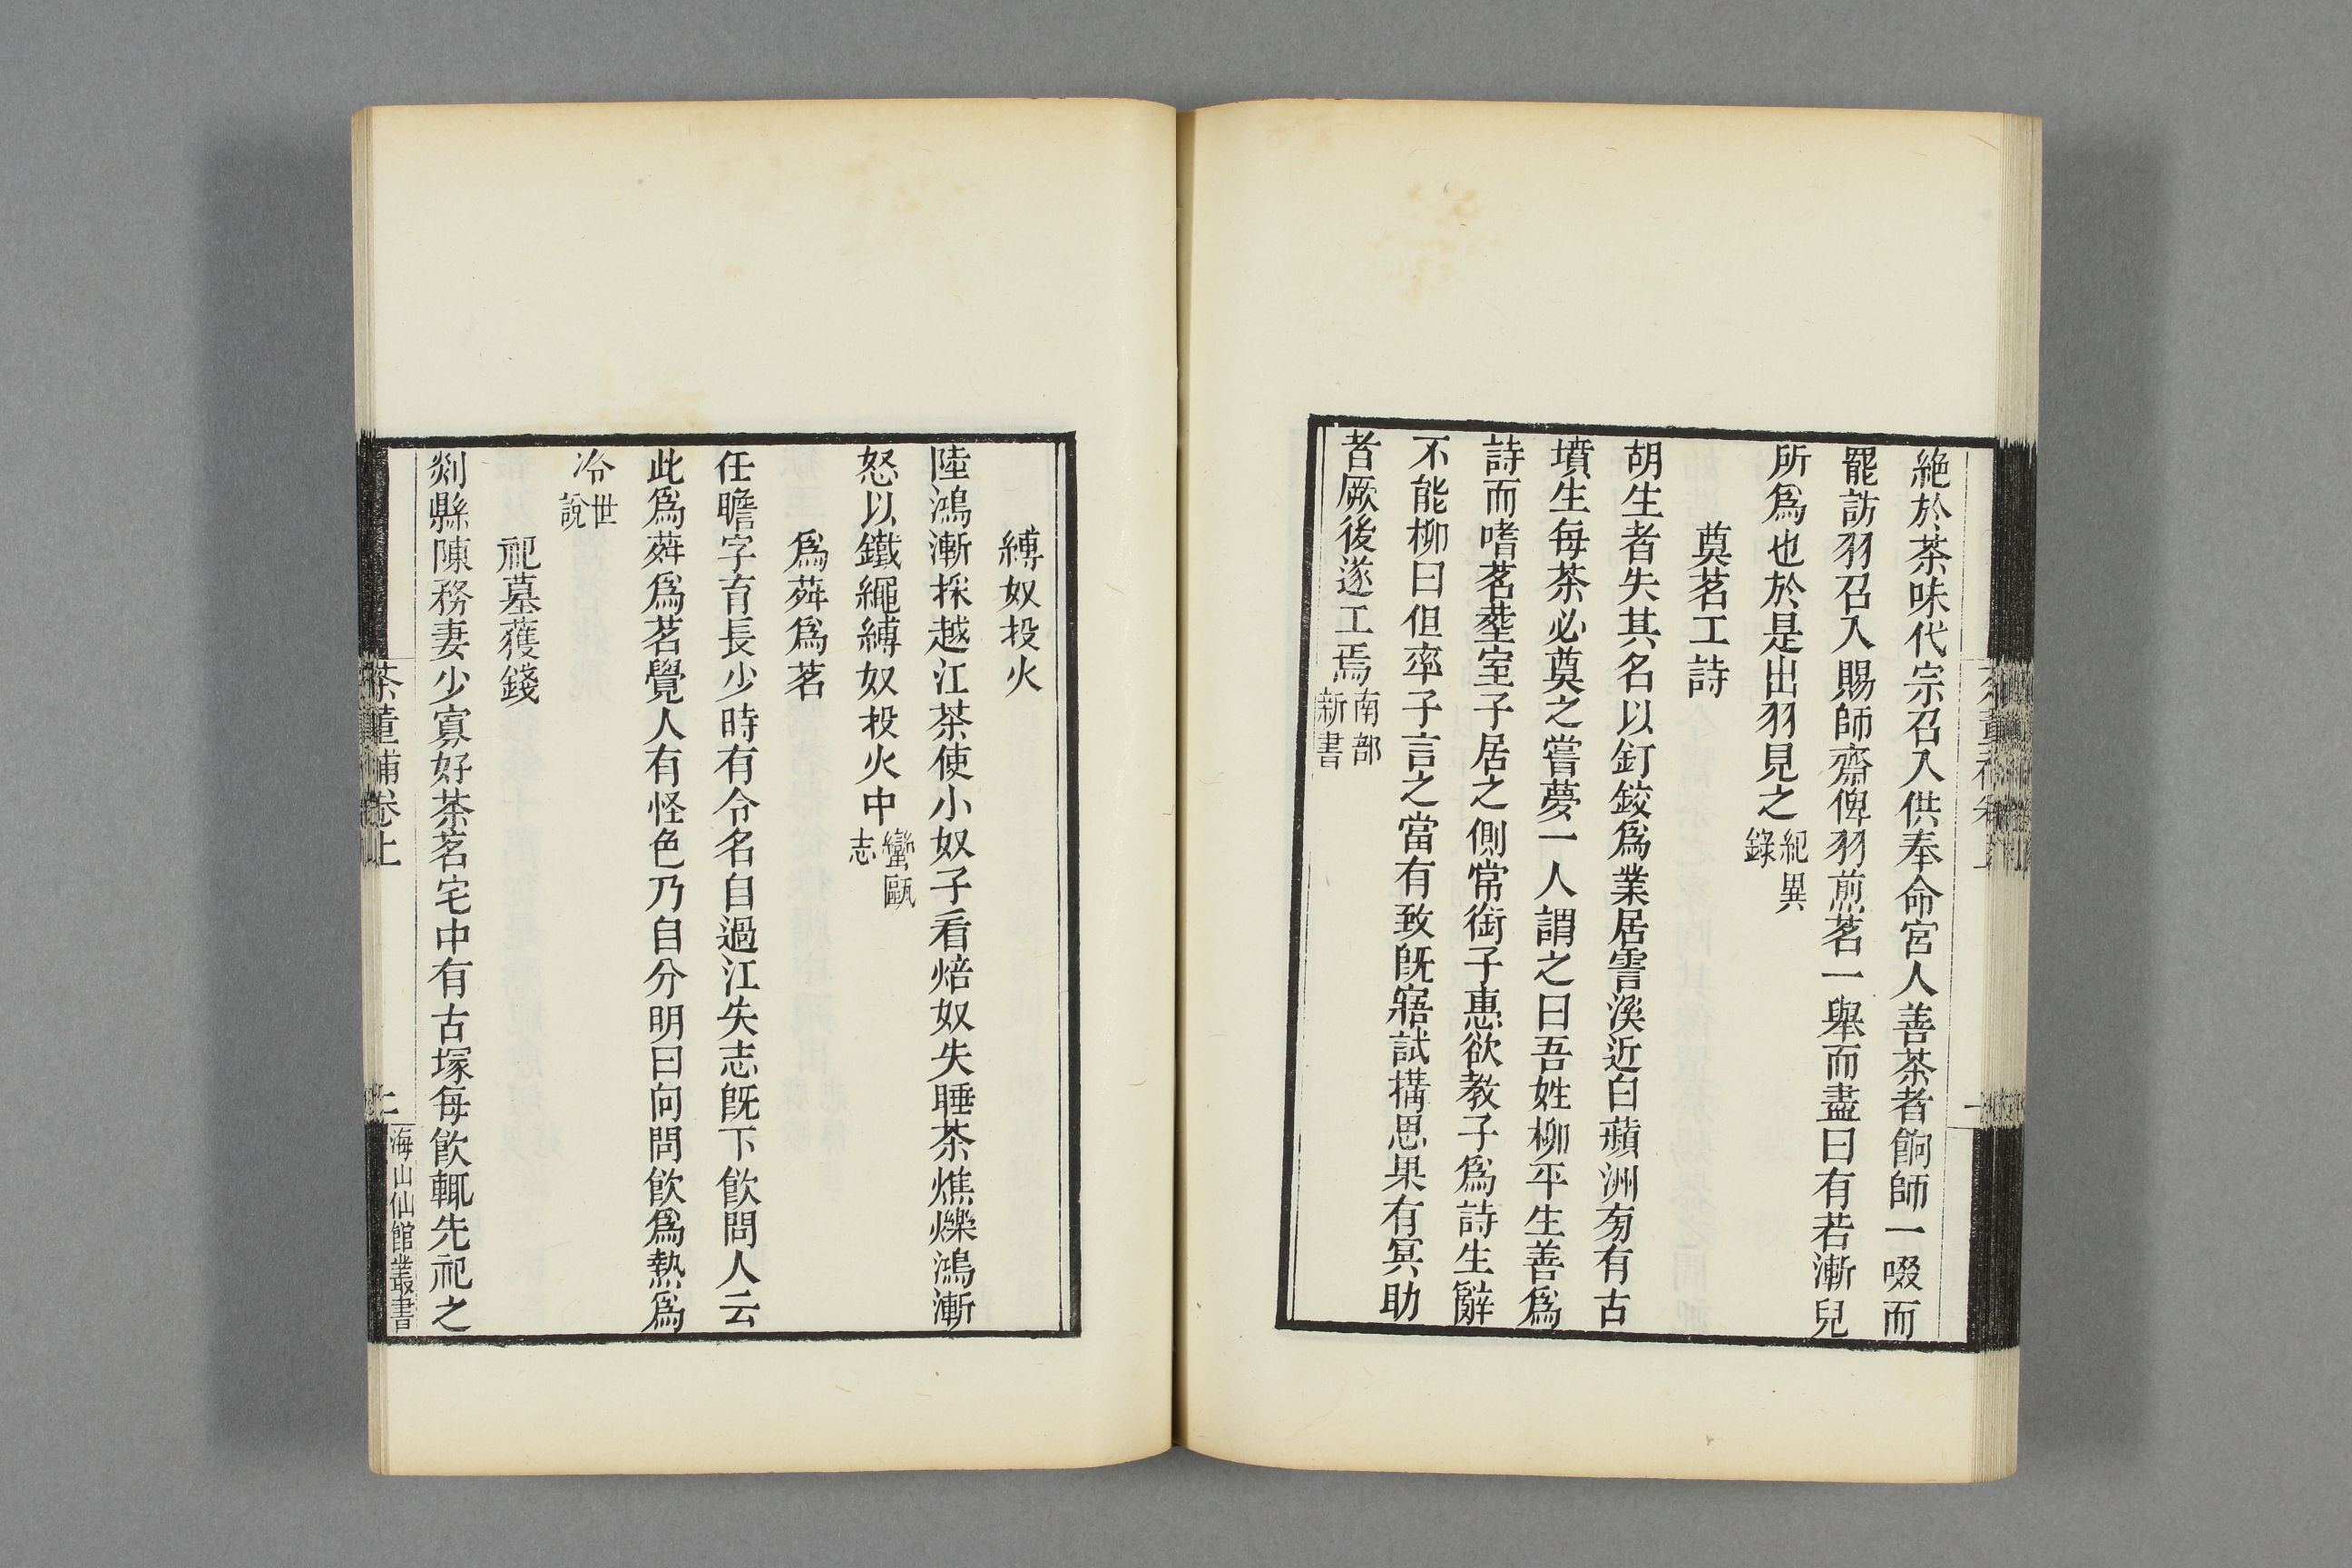 絕於茶味代宗召入供奉命宮人善茶者餉師一啜而
罷訪羽召入賜師齋俾羽煎茗一舉而盡曰有若漸兒
所爲也於是出羽見之紀異錄
奠茗工詩
胡生者失其名以釘鉸爲業居霅溪近白蘋洲旁有古
墳生每茶必奠之嘗夢一人謂之曰吾姓柳平生善爲
詩而嗜茗葬室子居之側常銜子惠欲教子爲詩生辭
不能柳曰但率子言之當有致旣寤試搆思果有冥助
者厥後遂工焉南部新書
縛奴投火
陸鴻漸採越江茶使小奴子看焙奴失睡茶燋爍鴻漸
怒以鐵繩縛奴投火中蠻甌志
爲荈爲茗
任瞻字育長少時有令名自過江失志旣下飮問人云
此爲荈爲茗覺人有怪色乃自分明曰向問飮爲熱爲
冷世說
祀墓獲錢
剡縣陳務妻少寡好茶茗宅中有古塚每飮輒先祀之
茶董補卷上
二
海山仙館叢書